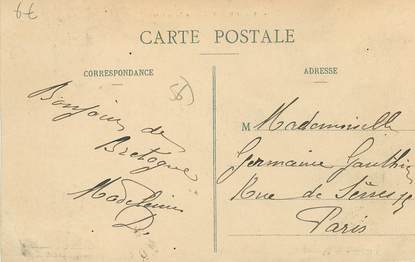 6€
CARTE POSTALE
CORRESPONDANCE
Bonjour de
Bretagne
Madeleine
D.
ADRESSE
M Mademoiselle
Germaine Gauthier
Rue de Sèvres
Paris